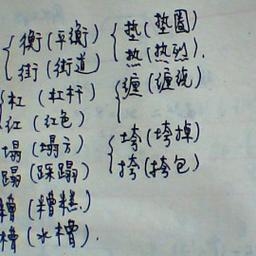 衡(平衡)
街(街道)
杠(杠杆)
红(红色)
塌(塌方)
蹋(踩蹋)
糟(糟糕)
槽(水槽).
垫(垫圈)
热(热烈).
缠(缠绕)
垮(垮掉)
挎(挎包)